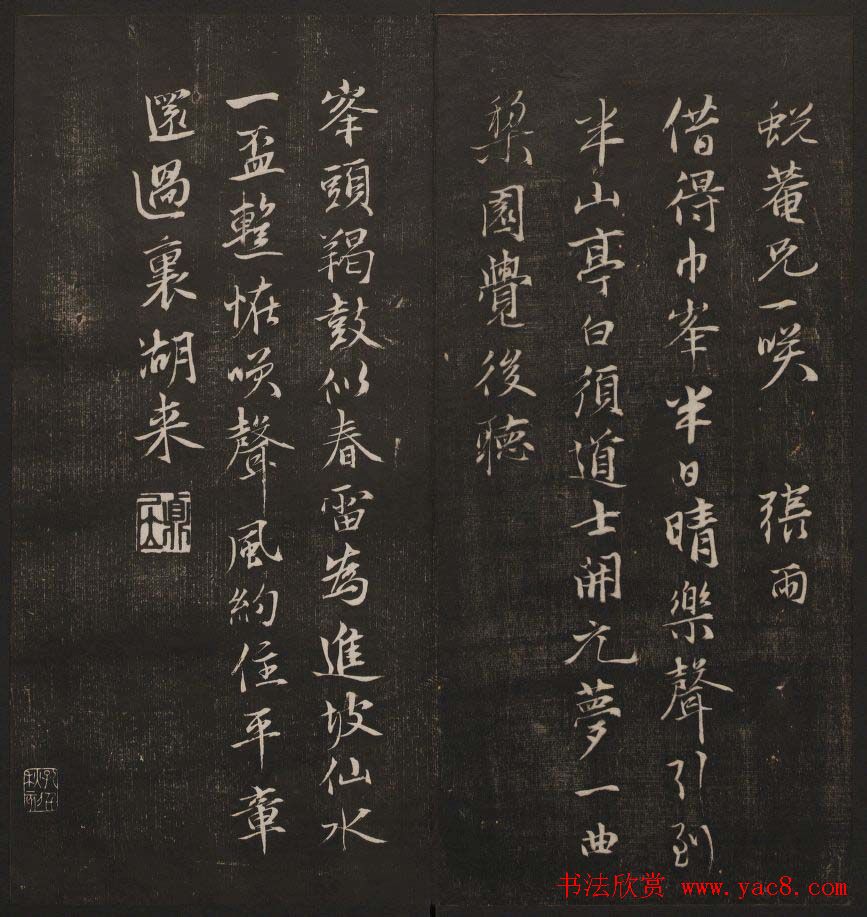 蜕菴兄一咲 張雨
借得巾峯半日晴樂聲引到
半山亭白須道士開元夢一曲
梨園覺後聽
峯頭羯鼓似春雷為進坡仙水
一盃整恠咲聲風約住平章
還過裏湖来
书法欣赏 www.yac8.com